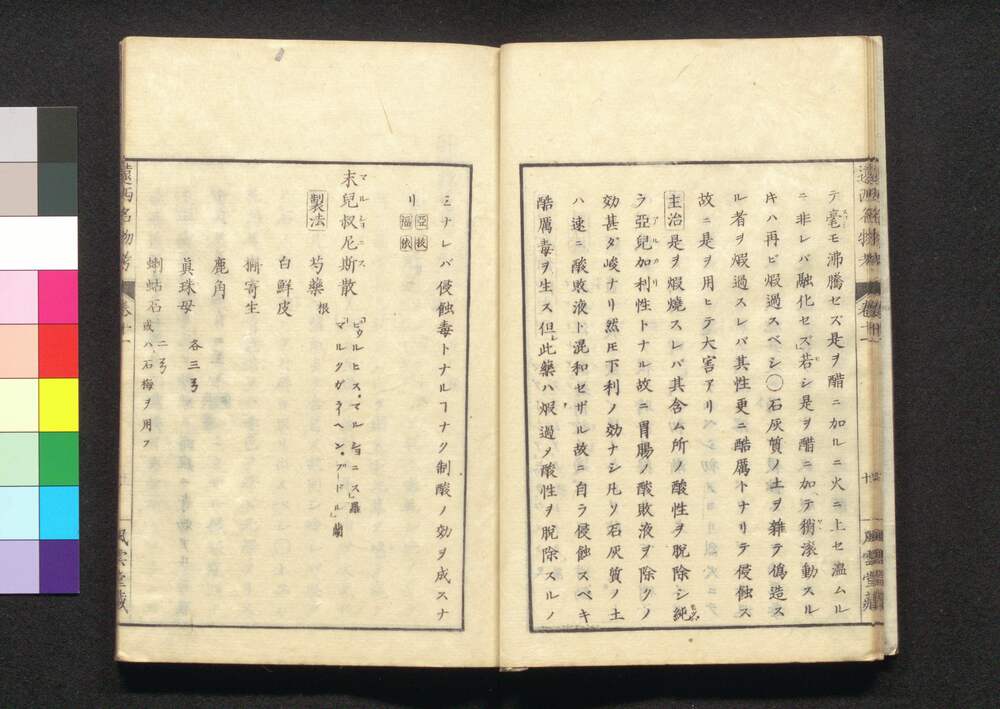 テ毫モ沸騰セズ是ヲ醋ニ加ルニ火ニ上セ温ムル
ニ非レバ融化セズ若シ是ヲ醋ニ加テ猶滚動スル
キハ再ビ煆過スベシ〇石灰質ノ土ヲ雜テ偽造ス
ル者ヲ煆過スレバ其性更ニ酷厲トナリテ侵蝕ス
故ニ是ヲ用ヒテ大害アリ
主治是ヲ煆燒スレバ其含ム所ノ酸性ヲ脫除シ純
ラ亞兒加利性トナル故ニ胃腸ノ酸敗液ヲ除クノ
効甚ダ峻ナリ然𪜈下利ノ効ナシ凡ソ石灰質ノ土
ハ速ニ酸敗液ト混和セザル故ニ自ラ侵蝕スベキ
酷厲毒ヲ生ス但此藥ハ煆過ノ酸性ヲ脫除スルノ
遠西名物考
風雲堂藏
ミナレバ侵蝕毒トナルヿナク制酸ノ効ヲ成スナ
リ
末兒叔尼斯散
マルシヨニス
「ピウルヒス、マルショニス」羅
「マルクガラーヘン、プードル」蘭
製法 芍藥根
白鮮皮
槲寄生
鹿角
眞珠母 各三
蜊蛄石 二 或ハ石梅ヲ用フ
遠西名物考
風雲堂藏